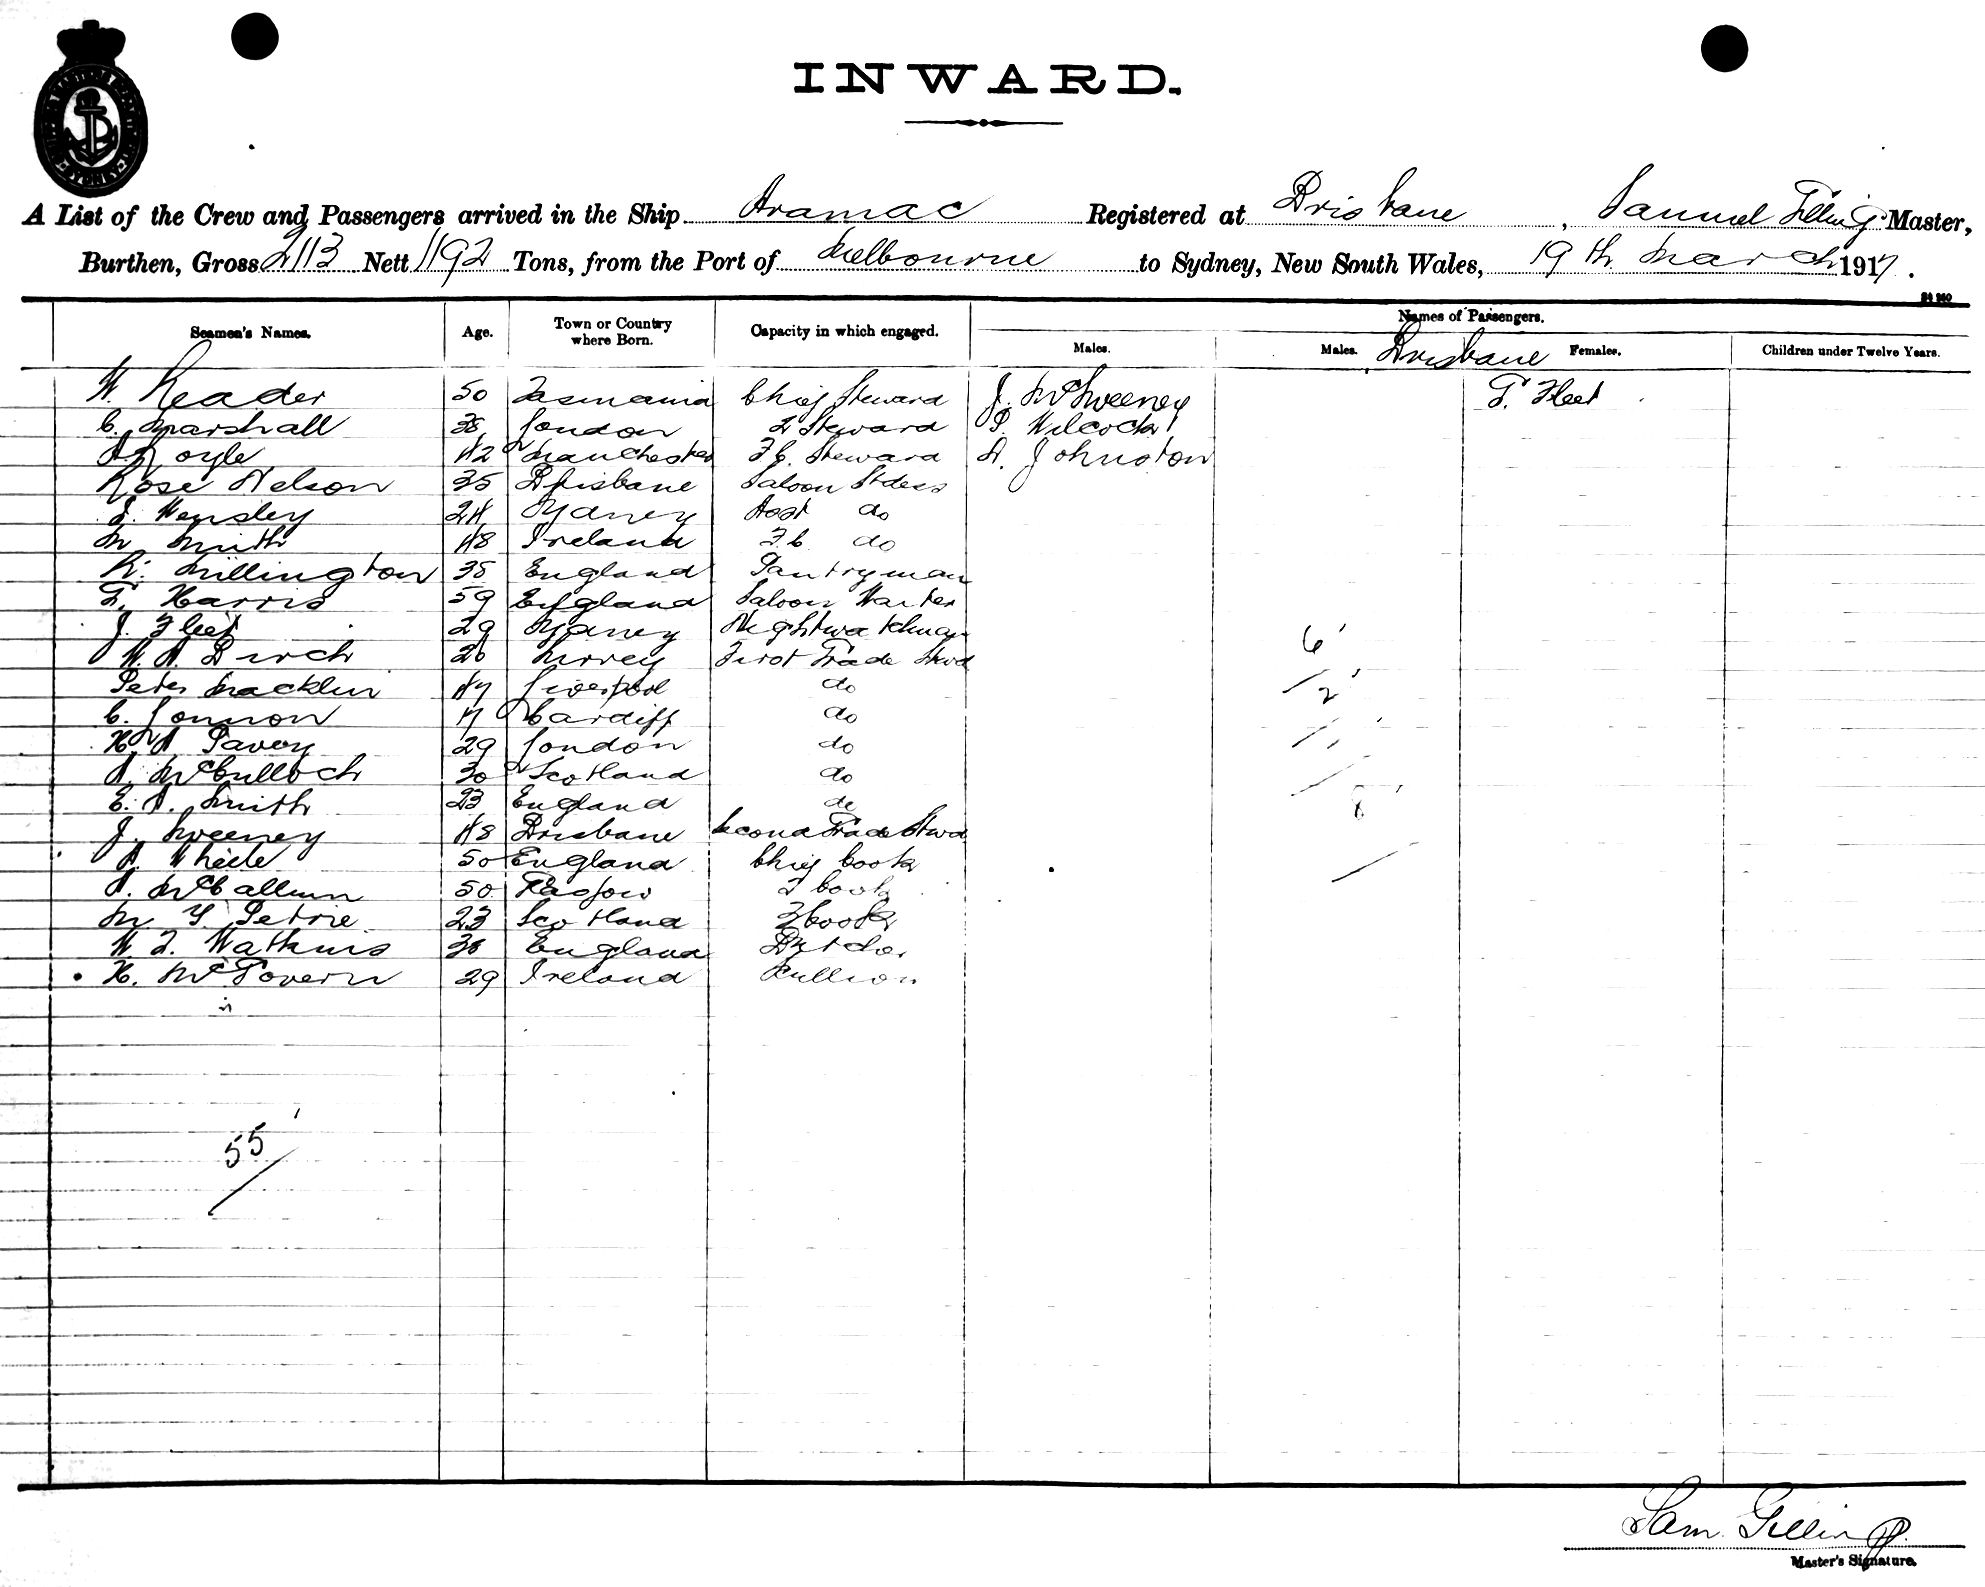 INWARD.
A List of the Crew and Passengers arrived in the Ship Aramac Registered at Brisbane, Samuel Gilling Master,
Burthen, Gross 2113 Nett 1192 Tons, from the Port of Melbourne to Sydney, New South Wales, 19th March 1917.
Names of Passengers.
Seamen's Names. Age. Town or Country where Born. Capacity in which engaged. Males. Males. Brisbane Females. Children under Twelve Years.
W. Reader 50 Tasmania Chief Steward J. McSweeney T. Fleet
C. Marshall 38 London 2 Steward P. Wilcock
A Coyle 42 Manchester F.C. Steward A. Johnston
Rose Nelson 35 Brisbane Saloon Stdess
E. Wensley 24 Sydney Asst do
M Smith 48 Ireland F.C. do
R. Millington 35 England Pantryman
T. Harris 59 England Saloon Waiter
J. Fleet 29 Sydney Nightwatchman
W. A. Birch 26 Surrey First Trade Stwd
Peter Macklin 47 Liverpool do
C. Lonnon 17 Cardiff do
H. A Pavey 29 London do
A. McCulloch 30 Scotland do
E. A. Smith 23 England do
J. Sweeney 48 Brisbane Second Trade Stwd
A Wheele 50 England Chief Cook
A. McCallum 50 Glasgow 2 Cook
M Y Petrie 23 Scotland 3 Cook
W. J. Watkins 36 England Butcher
H. McGovern 29 Ireland Scullion
6
2
8
55
Sam. Gilling
Master's Signature.